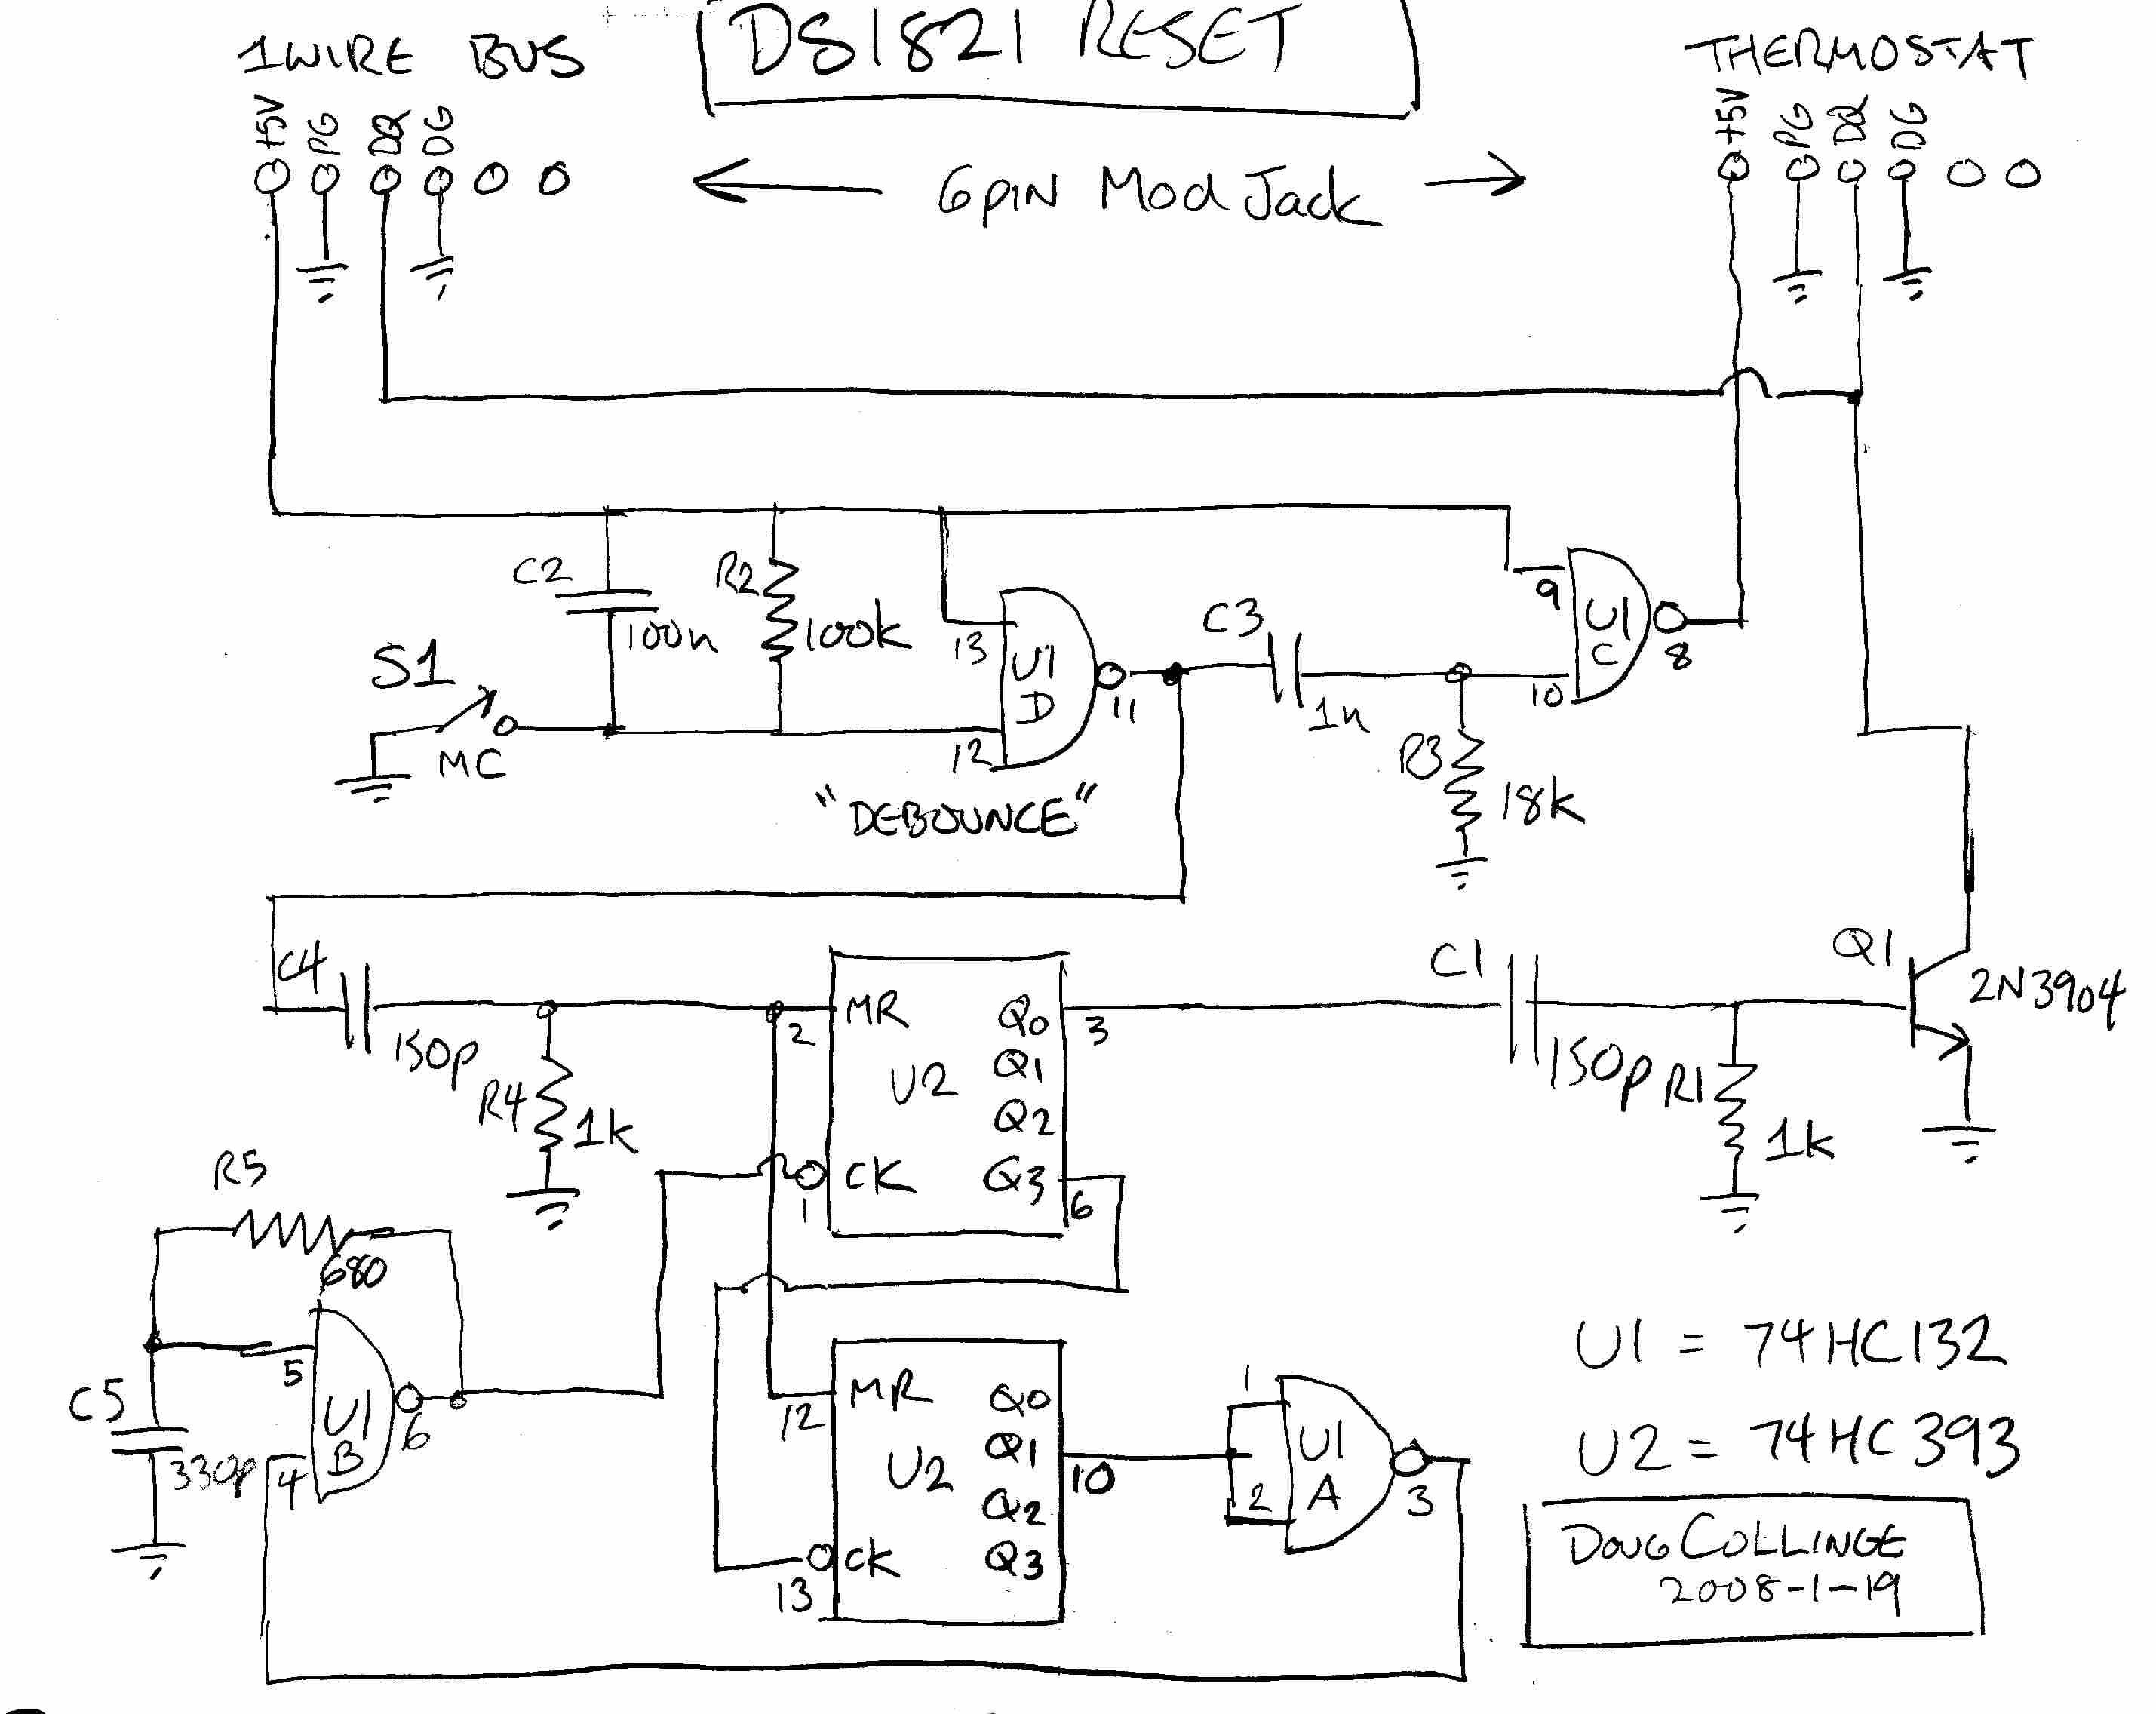 DS1821 RESET
1WIRE BUS
THERMOSTAT
+5V PG DQ DG
+5V PG DQ DG
6 PIN Mod Jack
C2
100n
R2
100k
S1
MC
13
12
U1
D
11
"DEBOUNCE"
C3
1n
R3
18k
9
10
U1
C
8
C4
150p
R4
1k
2 MR
U2
1 CK
Q0 3
Q1
Q2
Q3 6
C1
150p
R1
1k
Q1
2N3904
R5
680
C5
330p
5
4
U1
B
6
12 MR
U2
13 CK
Q0
Q1 10
Q2
Q3
1
2
U1
A
3
U1 = 74HC132
U2 = 74HC393
DOUG COLLINGE
2008-1-19